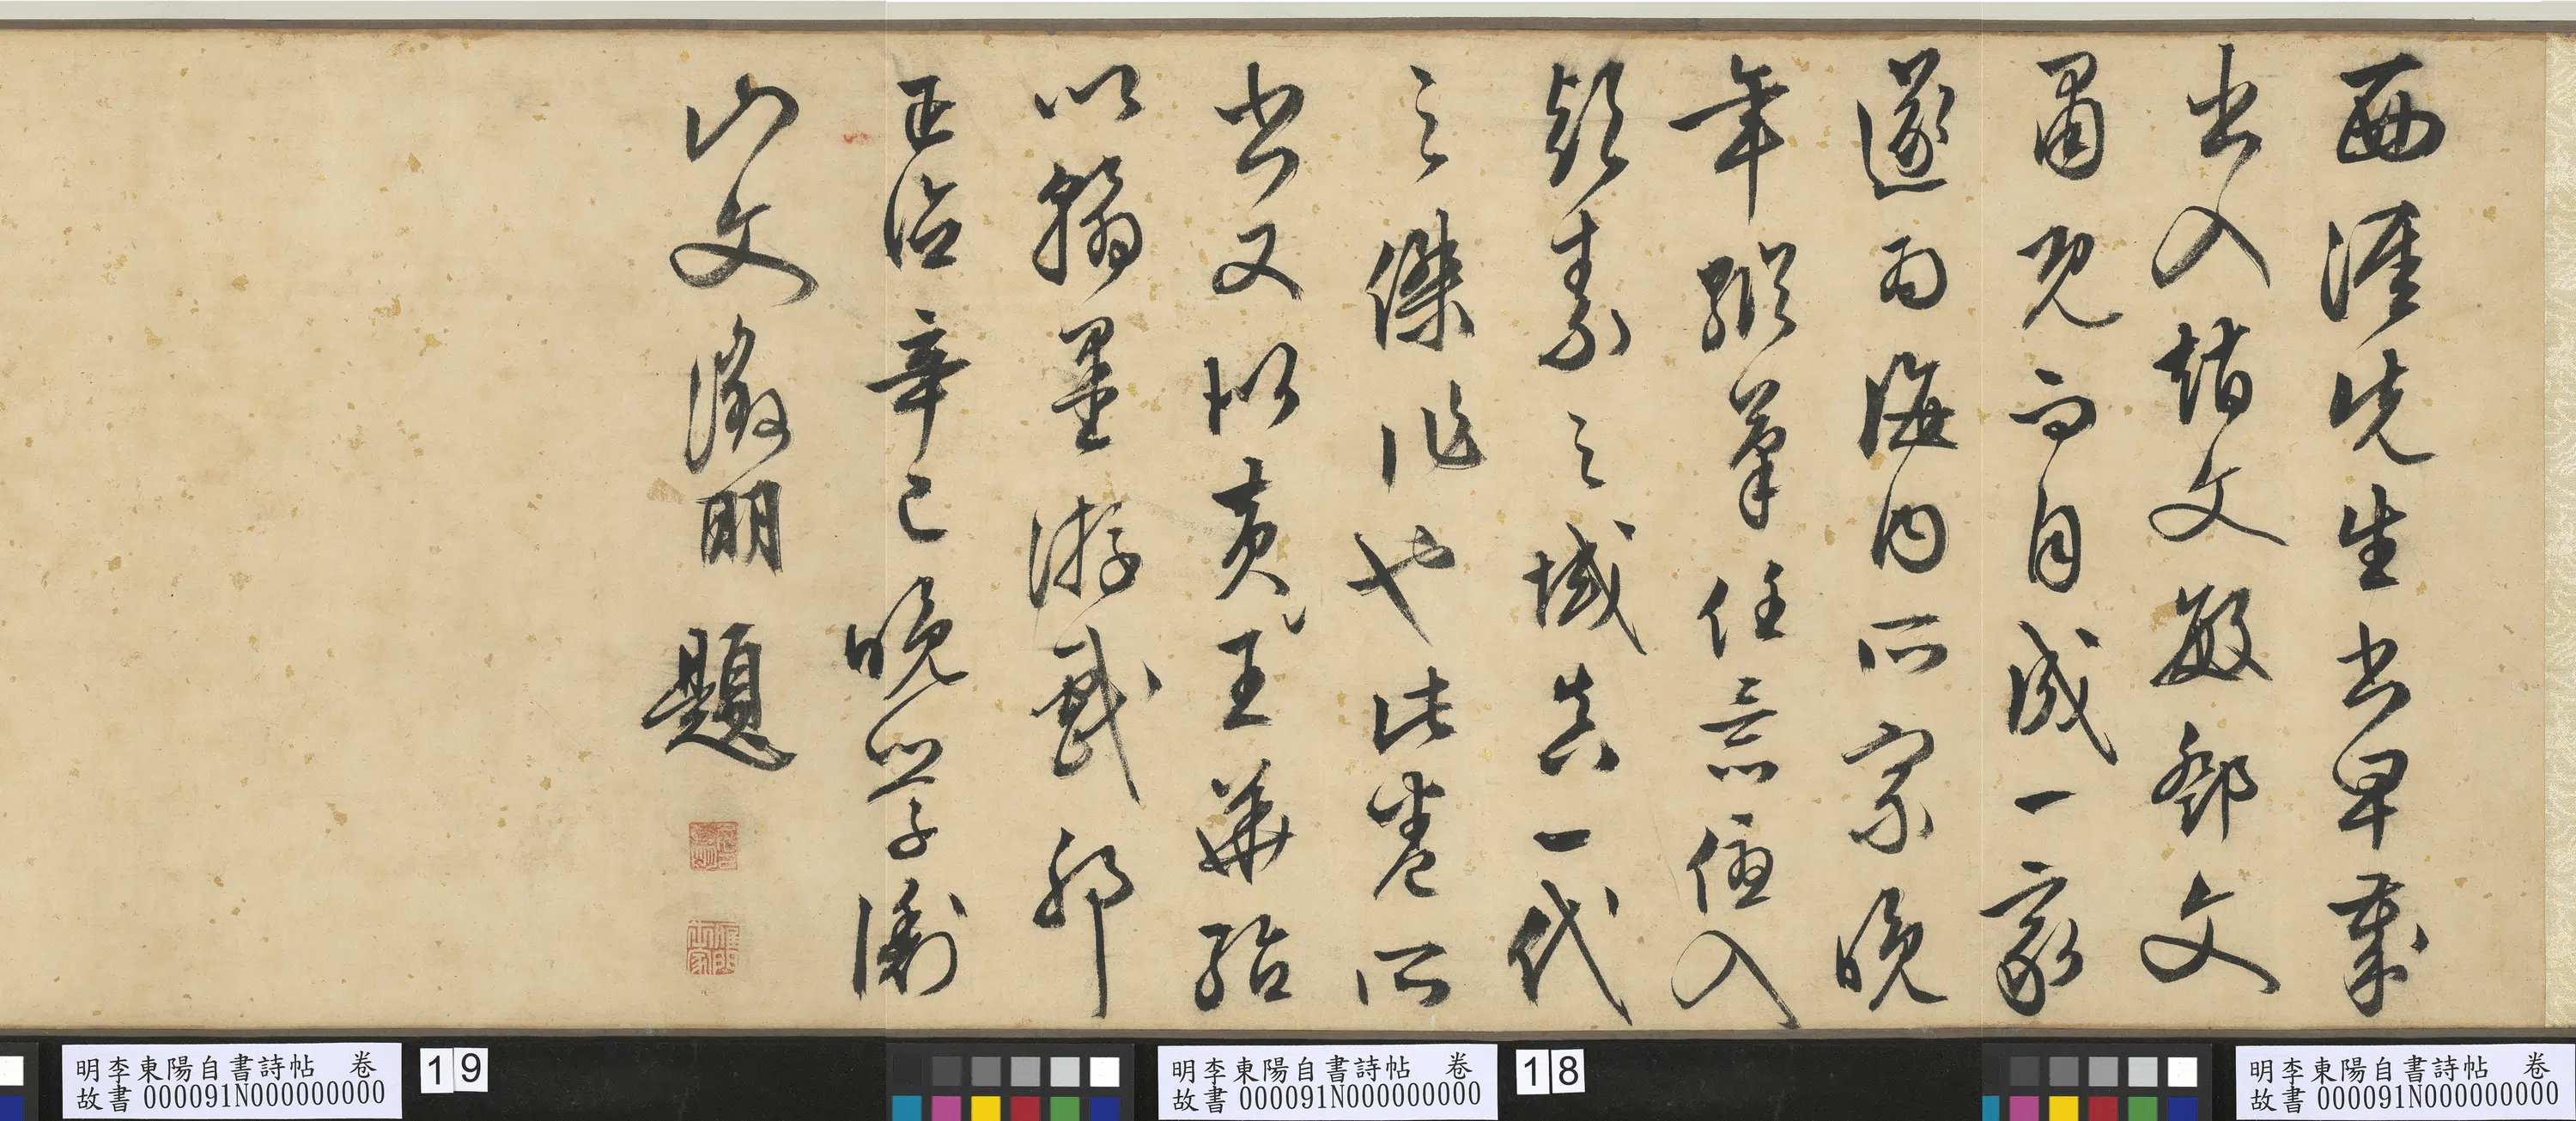 西涯先生書早歲
出入趙文敏鄧文
肅既而自成一家
遂為海內所宗晚
年縱筆任意優入
顛素之域真一代
之傑作也此卷所
書又似黃王華殆
以翰墨游戲耶
正德辛巳晚學衡
山文徵明題
明李東陽自書詩帖 卷
故書 000091N000000000
18
明李東陽自書詩帖 卷
故書 000091N000000000
19
明李東陽自書詩帖 卷
故書 000091N000000000